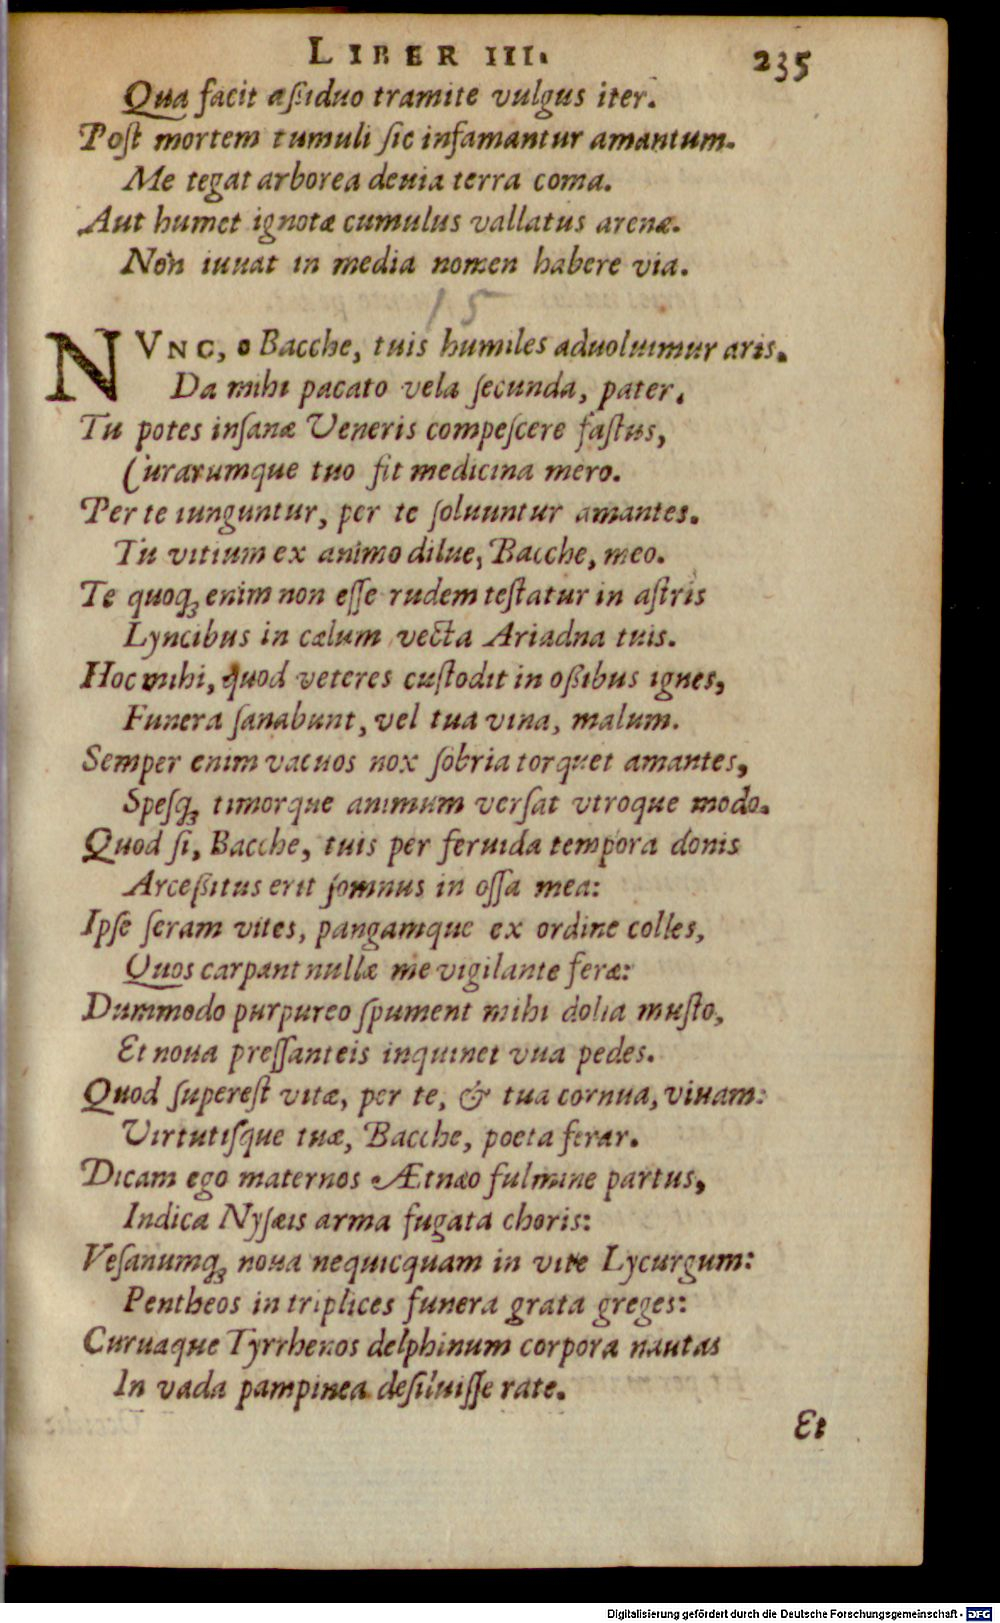 LIBER III. 235
Qua facit aßiduo tramite vulgus iter.
Poſt mortem tumuli ſic infamantur amantum.
Me tegat arborea deuia terra coma.
Aut humet ignotæ cumulus vallatus arenæ.
Non iuuat in media nomen habere via.
15
NVNC, o Bacche, tuis humiles aduoluimur aris.
Da mihi pacato vela ſecunda, pater.
Tu potes inſanæ Veneris compeſcere faſtus,
Curarumque tuo fit medicina mero.
Per te iunguntur, per te ſoluuntur amantes.
Tu vitium ex animo dilue, Bacche, meo.
Te quoqꝫ enim non eſſe rudem teſtatur in aſtris
Lyncibus in cælum vecta Ariadna tuis.
Hoc mihi, quod veteres cuſtodit in oßibus ignes,
Funera ſanabunt, vel tua vina, malum.
Semper enim vacuos nox ſobria torquet amantes,
Speſqꝫ timorque animum verſat vtroque modo.
Quod ſi, Bacche, tuis per feruida tempora donis
Arceßitus erit ſomnus in oſſa mea:
Ipſe ſeram vites, pangamque ex ordine colles,
Quos carpant nullæ me vigilante feræ:
Dummodo purpureo ſpument mihi dolia muſto,
Et noua preſſanteis inquinet vua pedes.
Quod ſupereſt vitæ, per te, & tua cornua, viuam:
Virtutiſque tuæ, Bacche, poeta ferar.
Dicam ego maternos Ætnæo fulmine partus,
Indica Nyſæis arma fugata choris:
Veſanumqꝫ noua nequicquam in vite Lycurgum:
Pentheos in triplices funera grata greges:
Curuaque Tyrrhenos delphinum corpora nautas
In vada pampinea deſiluiſſe rate.
Et
Digitalisierung gefördert durch die Deutsche Forschungsgemeinschaft - DFG